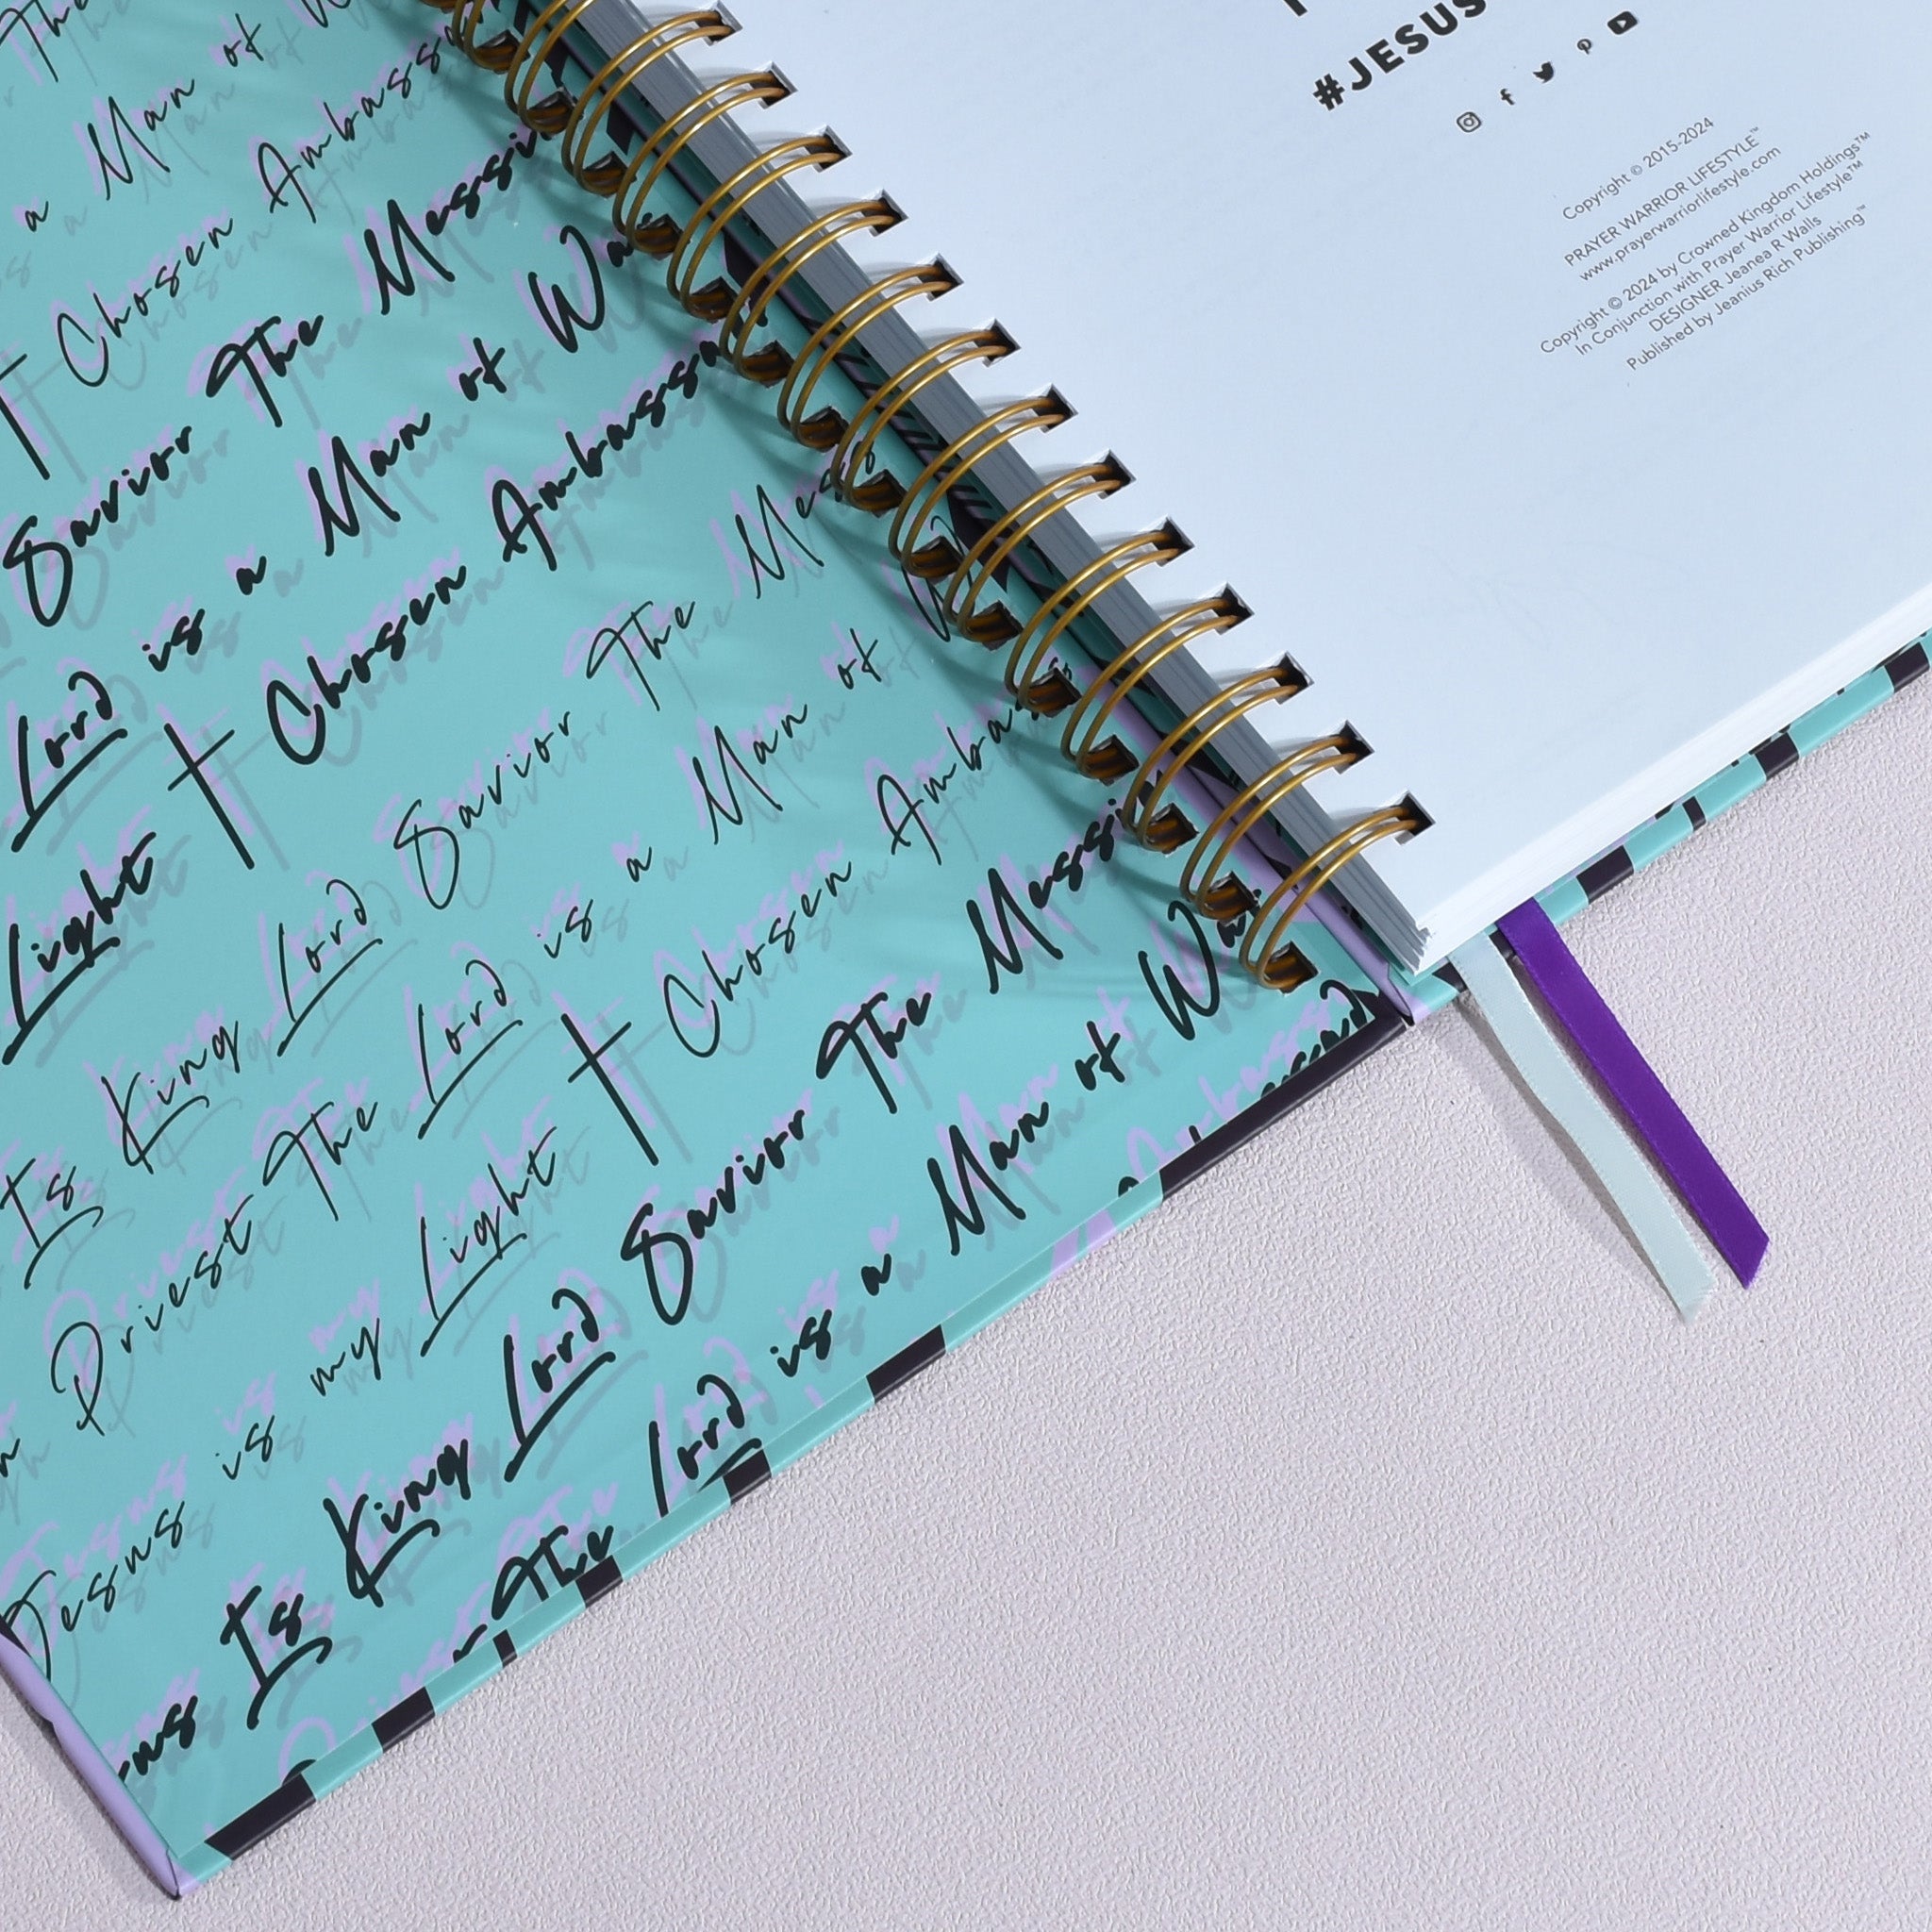 The
a Man of
Chosen Ambass
Savior The Messi
Lord is a Man of Wa
Light † Chosen Ambassa
Is King Lord Savior The Mes
Priest The Lord is a Man of W
Jesus is my Light † Chosen Ambas
Is King Lord Savior The Messi
The Lord is a Man of Wa
#JESUS
Copyright © 2015-2024
PRAYER WARRIOR LIFESTYLE™
www.prayerwarriorlifestyle.com
Copyright © 2024 by Crowned Kingdom Holdings™
In Conjunction with Prayer Warrior Lifestyle™
DESIGNER Jeanea R Walls
Published by Jeanius Rich Publishing™